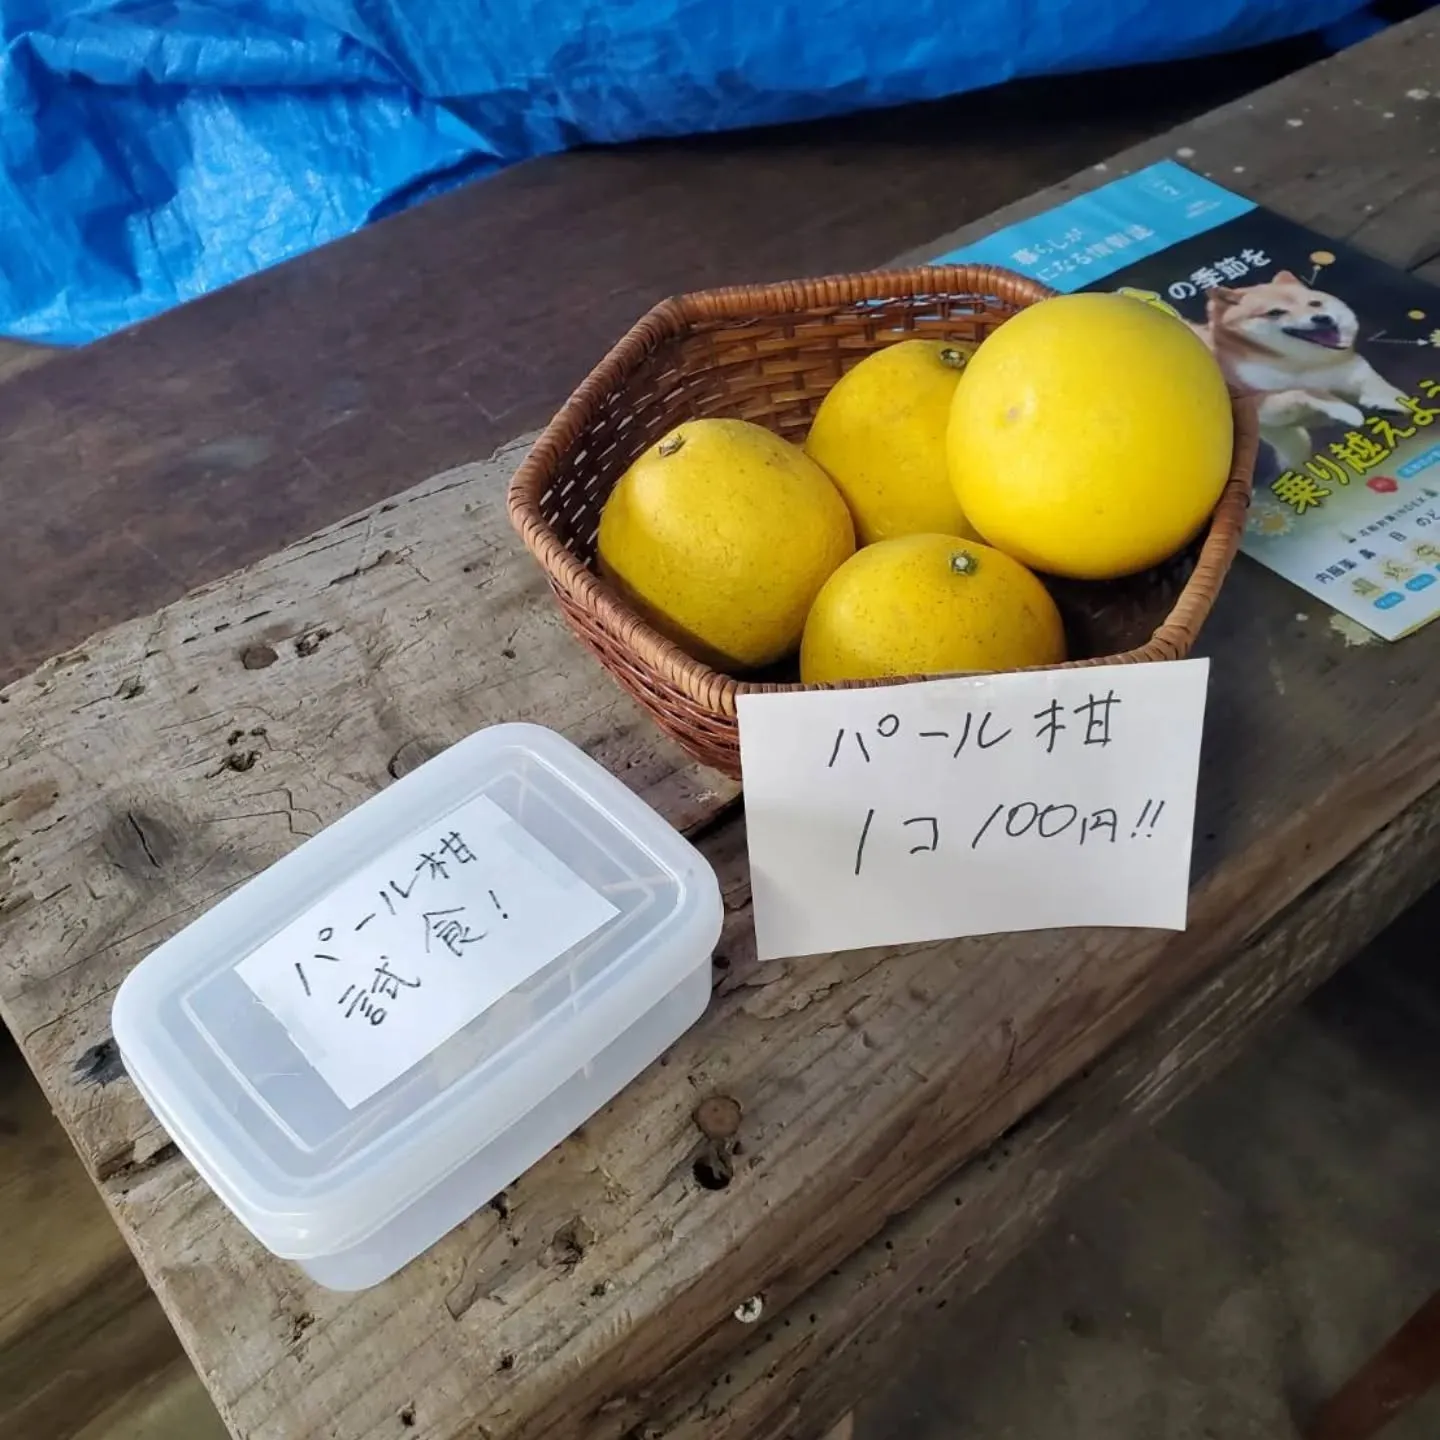 パール柑
1コ100円!!
パール柑
試食!
暮らしが
になる情報誌
の季節を
乗り越えよう
内服薬 鼻 目 のど